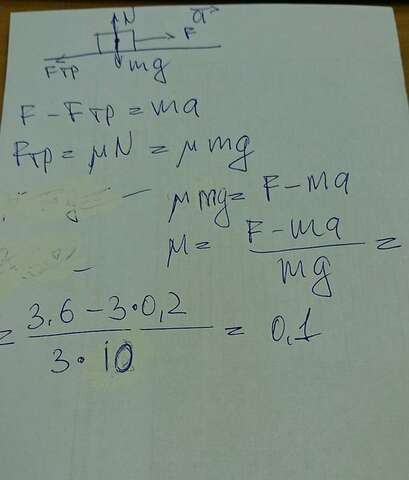 N
a
F
Fтр
mg
F - Fтр = ma
Fтр = μN = μmg
μmg = F - ma
μ = F - ma / mg =
= 3,6 - 3·0,2 / 3·10 = 0,1